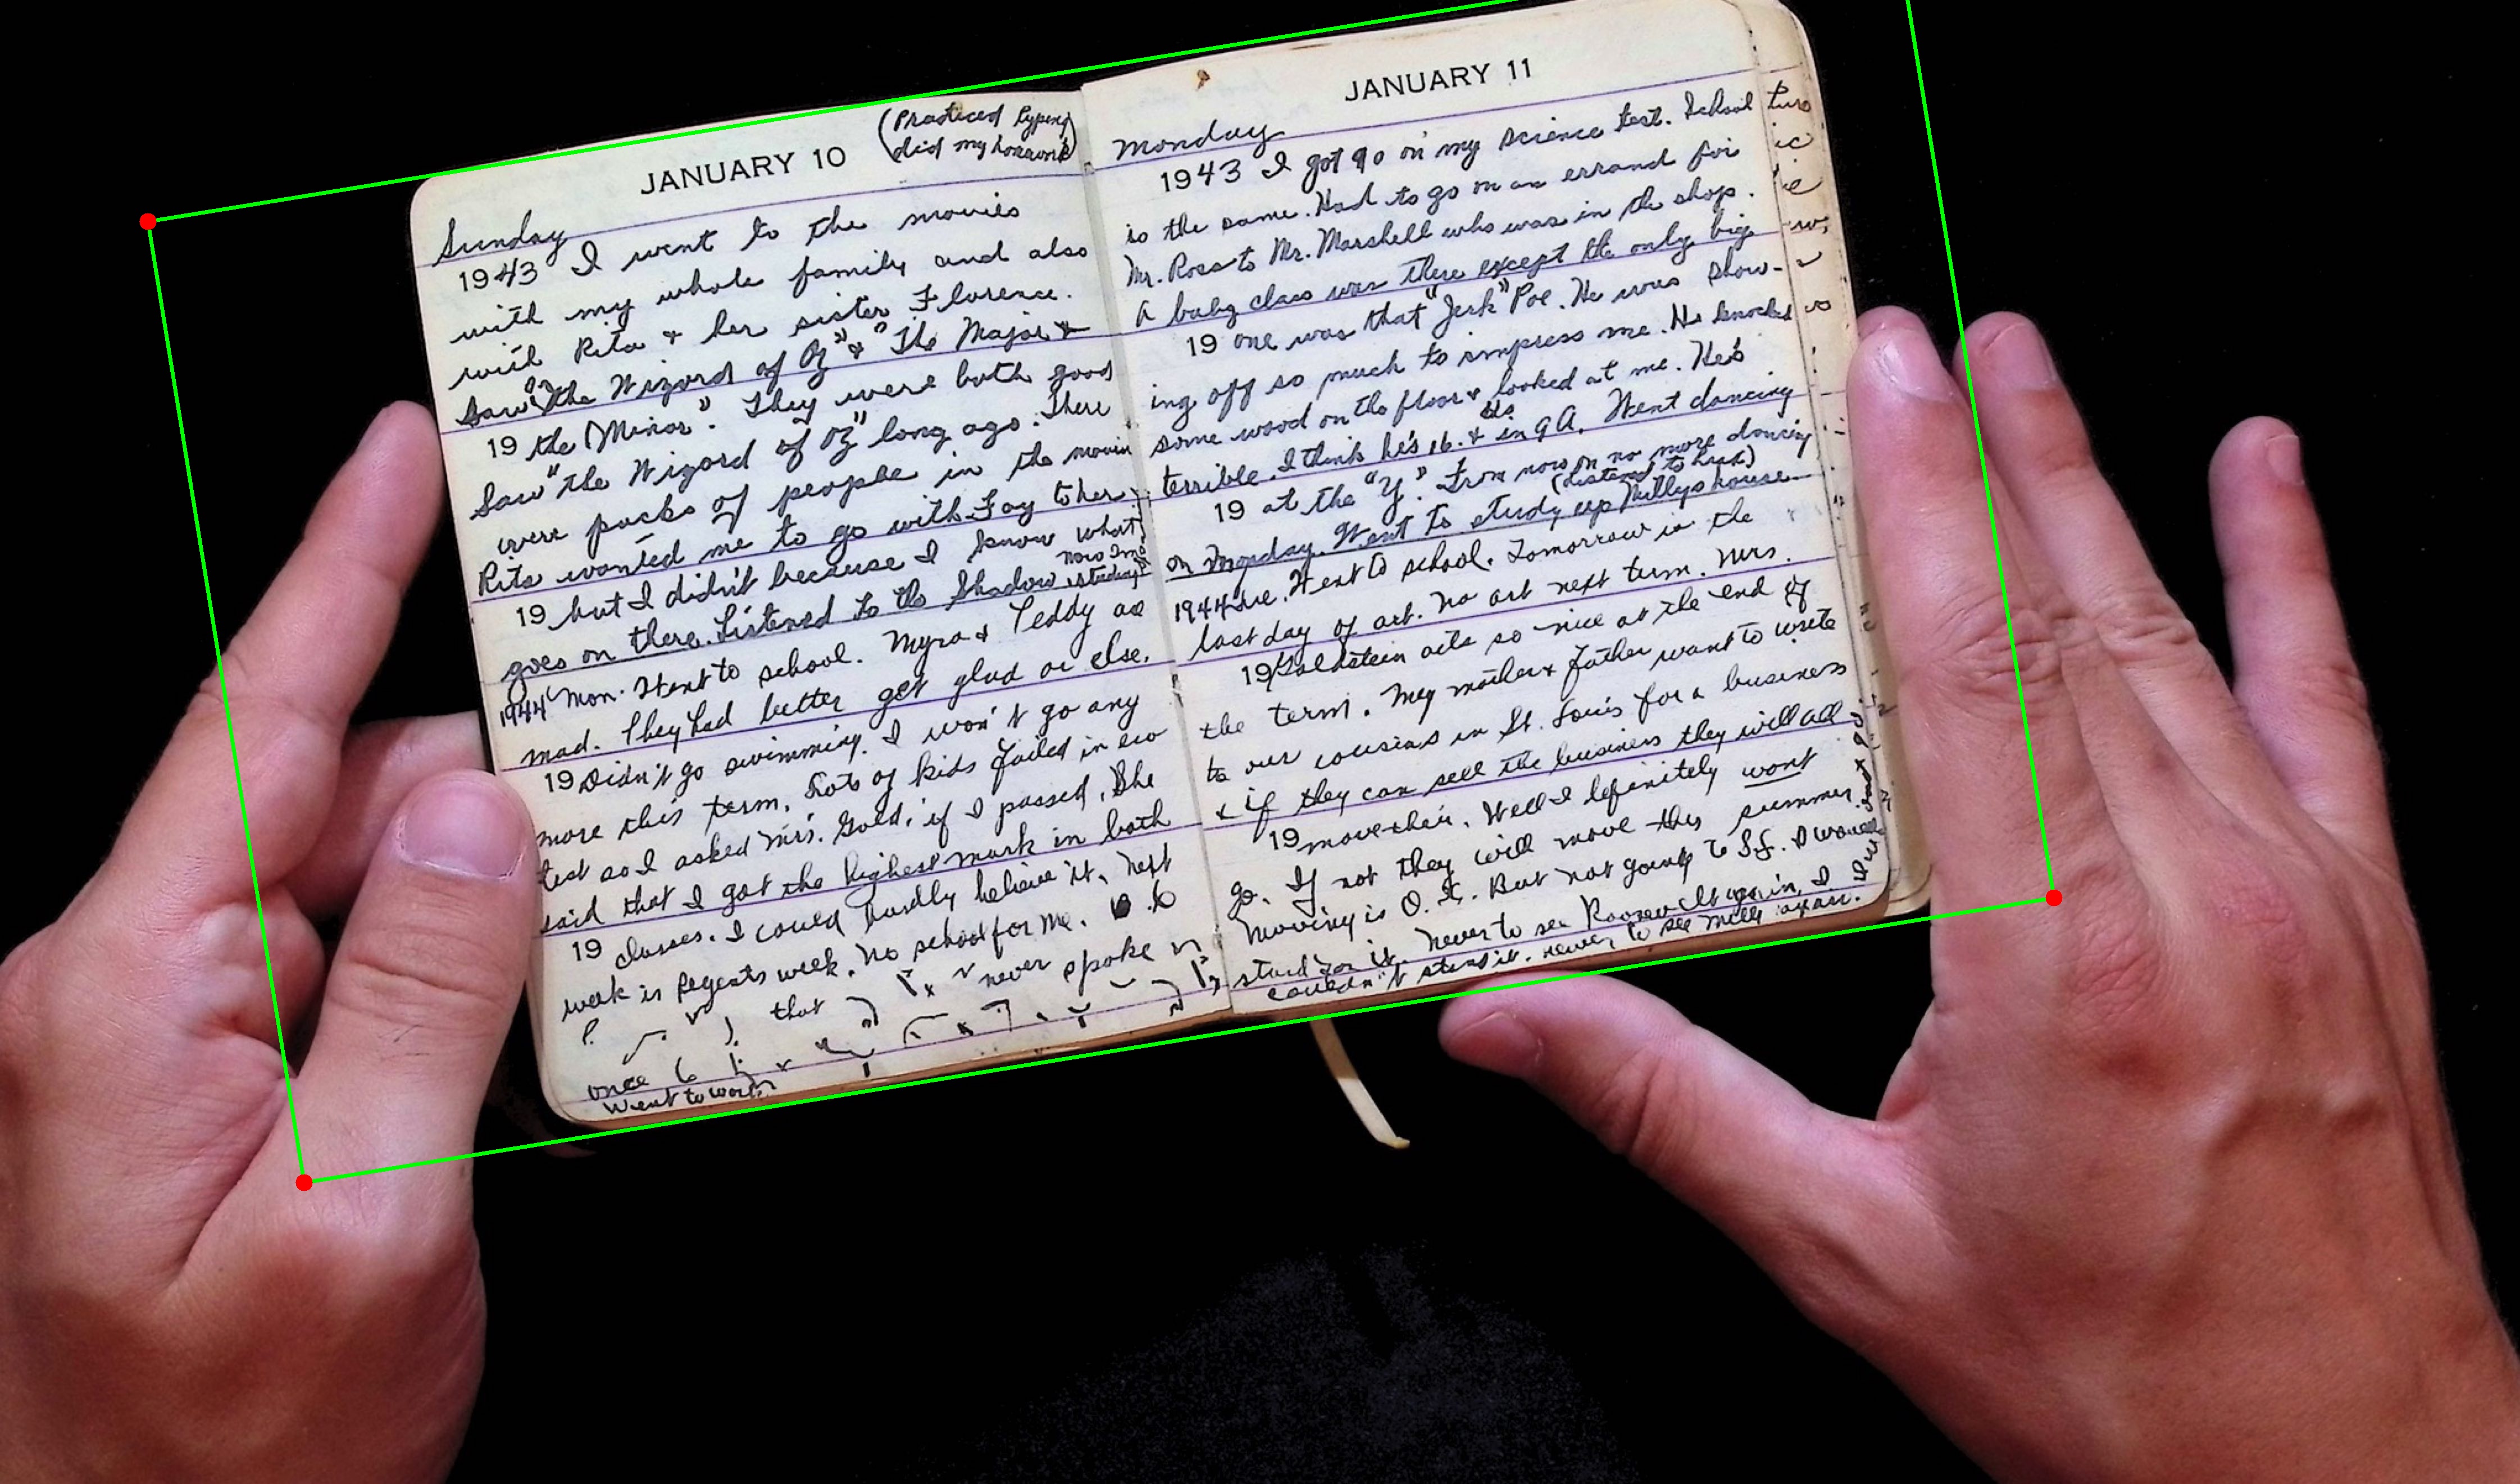 (Practiced typing
did my homework)
JANUARY 10
Sunday
1943 I went to the movies
with my whole family and also
with Rita & her sister Florence.
Saw "The Wizard of Oz" & "The Major &
19 the Minor". They were both good
Saw "the Wizard of Oz" long ago. There
were packs of people in the movie
Rita wanted me to go with Fay to her
19 but I didn't because I know what
goes on there. Listened to the Shadow
now I'm
studying
1944 Mon. Went to school. Myra & Teddy are
mad. They had better get glad or else.
19 Didn't go swimming. I won't go any
more this term. Lots of kids failed in eco
test so I asked Mrs. Gold. if I passed. She
said that I got the highest mark in both
19 classes. I could hardly believe it. Next
week is Regents week. No school for me.
never spoke
that
once
Went to work
JANUARY 11
Monday
1943 I got 90 on my science test. School
is the same. Had to go on an errand for
Mr. Ross to Mr. Marshell who was in the shop.
A baby class was there except the only big
19 one was that "Jerk" Poe. He was show-
ing off so much to impress me. He knocked
some wood on the floor & looked at me. He's
terrible. I think he's 16. & in 9A. Went dancing
19 at the "Y". From now on no more dancing
(Listened to Lux)
on Monday. Went to study up Millys house
1944 Tue. Went to school. Tomorrow is the
last day of art. No art next term. Mrs.
19 Goldstein acts so nice at the end of
the term. My mother & father want to write
to our cousins in St. Louis for a business
& if they can sell the business they will all
19 move their. Well I definitely wont
go. If not they will move this summer.
Moving is O.K. But not going to St. L. I would
stand for it. Never to see Roosevelt again. I
couldn't stand it. never to see Milly again.